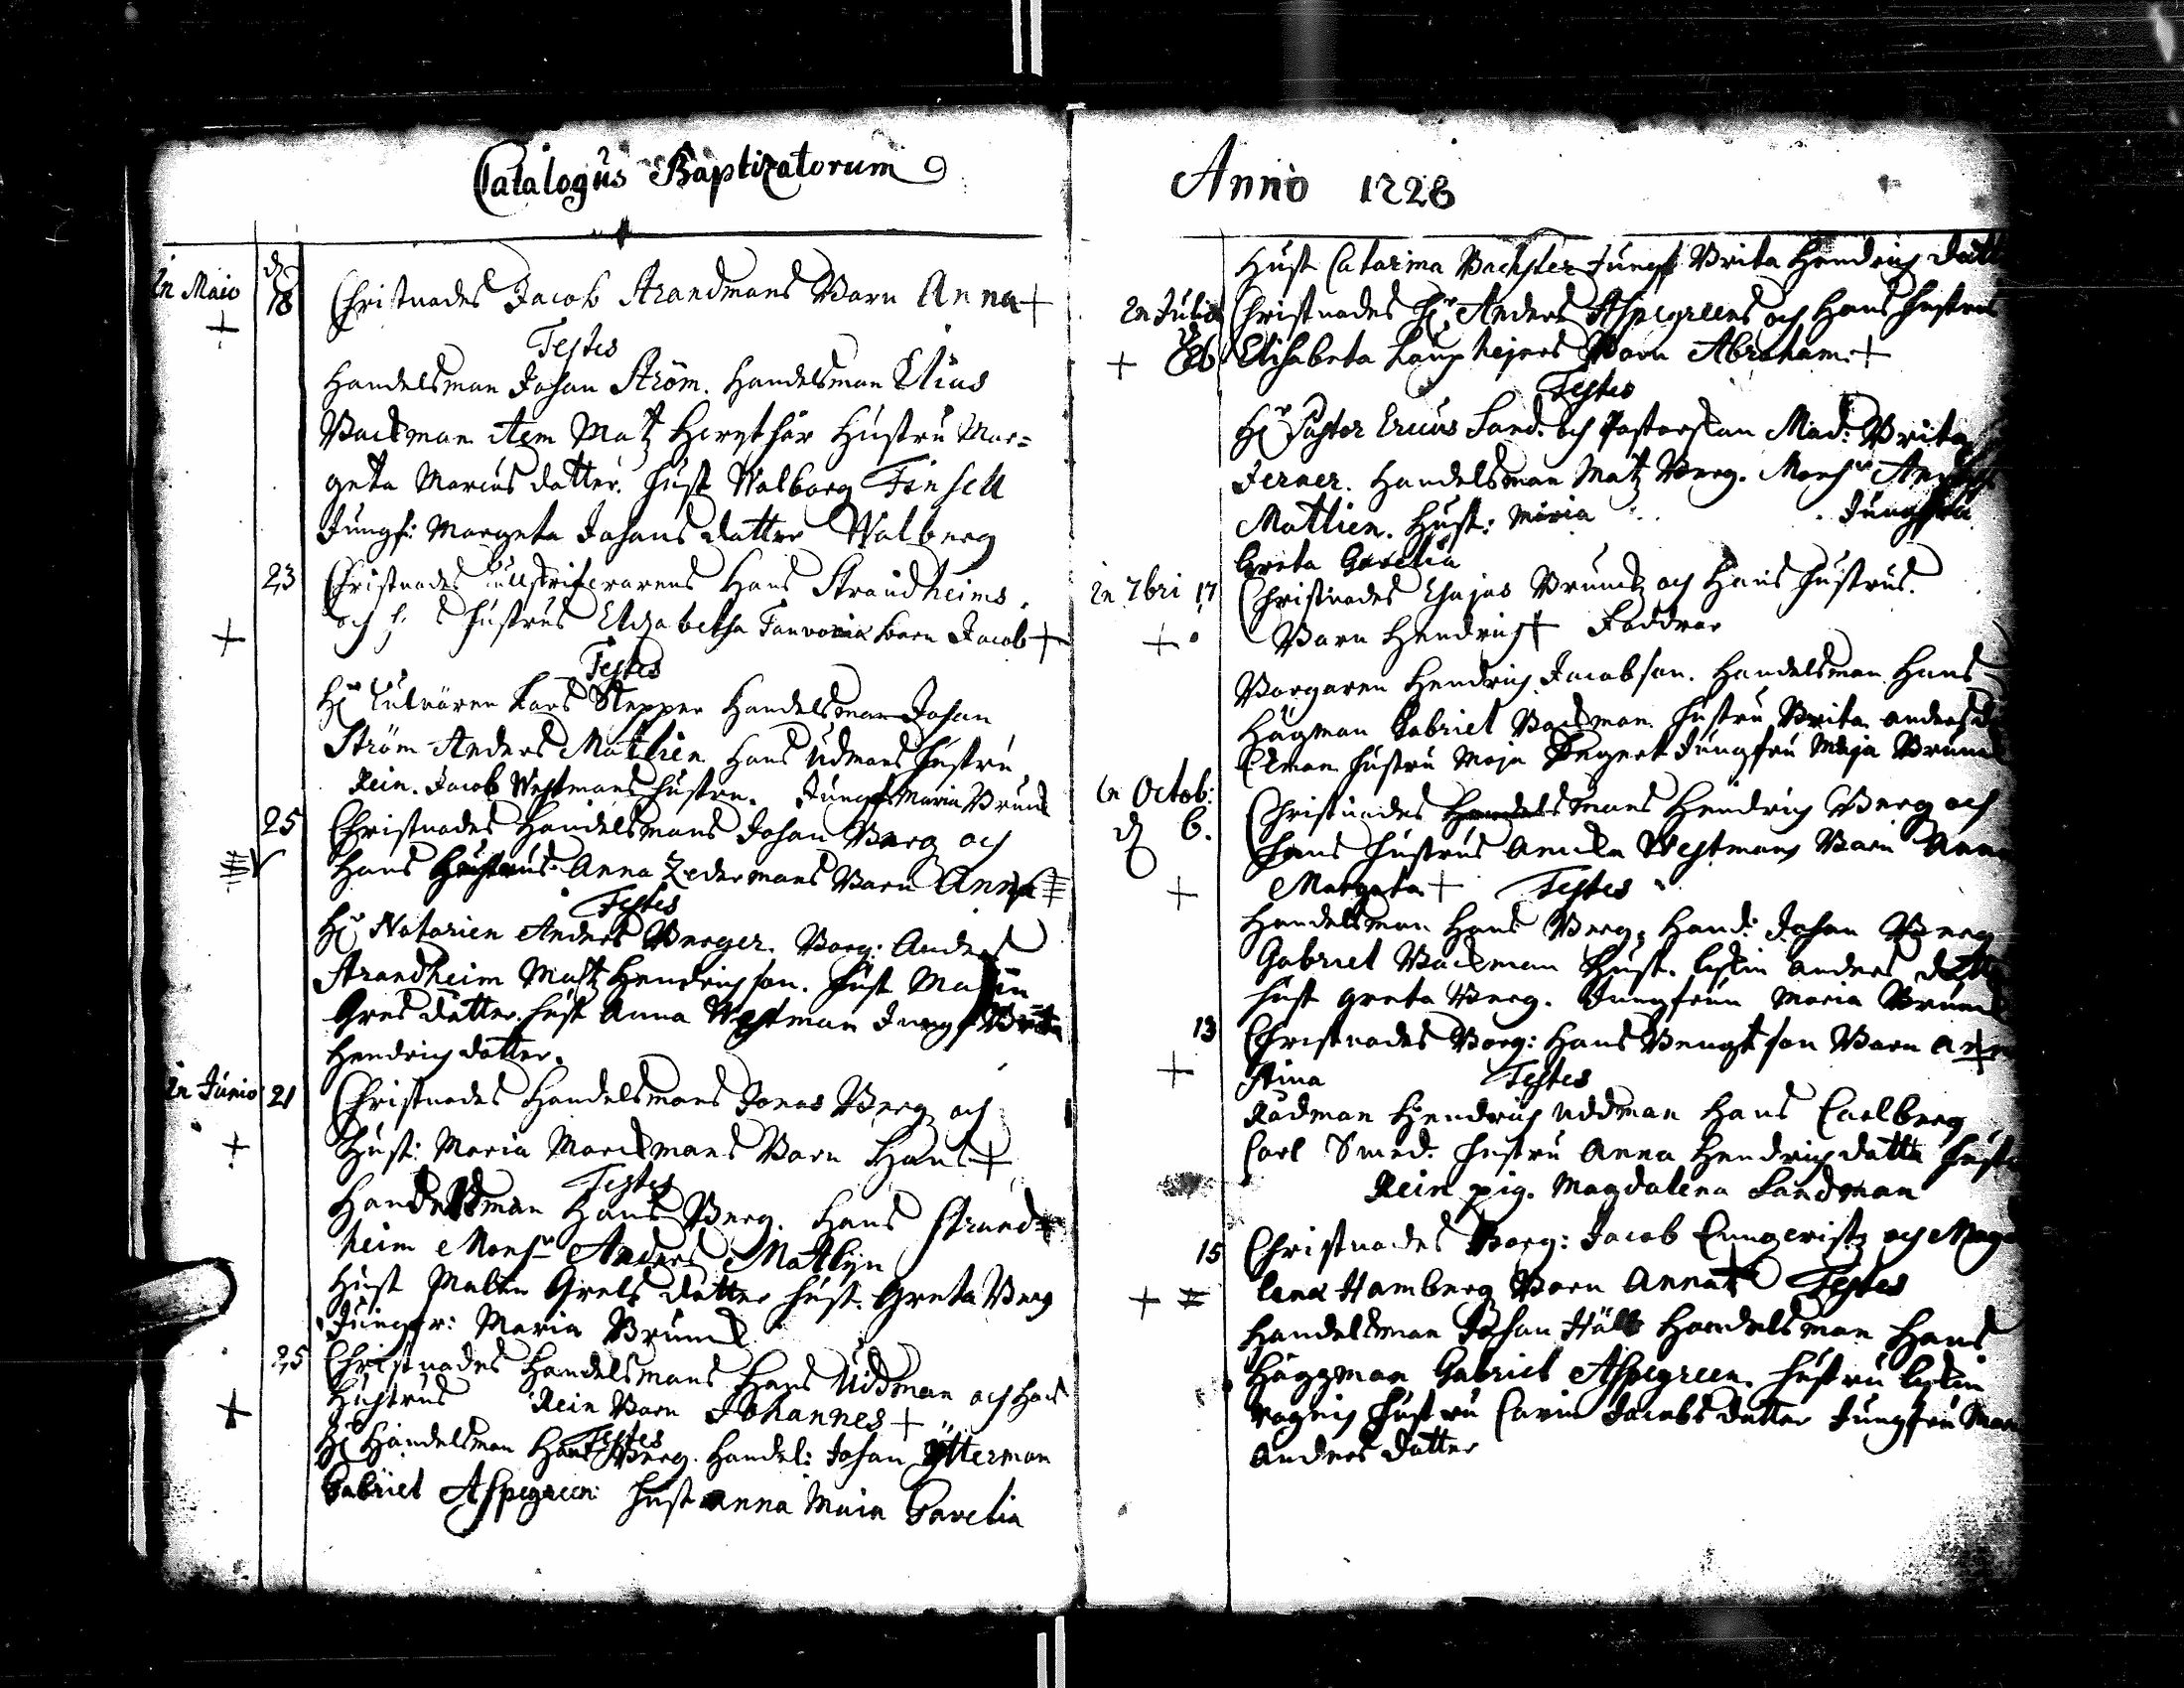 Catalogus Baptizatorum
In Maio d 18 Christnades Jacob Strandmans Barn Anna +
Testes
Handelsman Johan Ström. Handelsman Elias
Backman item Matz Hustru Mar=
geta Marcus datter. Hust Walborg
Jungf: Margeta Johans datter Walberg
23 Christnades Hans Strandheims
och Hustrus Elizabetha Barn Jacob +
Testes
Lars Stepper Handelsman Johan
Ström Anders Matlien Hans Udmans Hustru
Rein. Jacob Westmans Hustru. Jungf: Maria
25 Christnades Handelsmans Johan Berg och
Hans Hustrus Anna Zedermans Barn Anna
Testes
Hr Notarien Anders Berger. Borg: Anders
Strandheim Matz Hendrichson. Hust
Grels datter. Hust Anna Westman Jungf Brita
Hendrichdatter.
In Junio 21 Christnades Handelsmans Jonas Berg och
Hust: Maria Marckmans Barn Hans +
Testes
Handelsman Hans Berg. Hans Strand=
heim Monsr Anders Matlijn
Hust Malin Grels datter Hust. Greta Berg
Jungfr: Maria
25 Christnades Handelsmans Hans Uddman och Hans
Hustrus Rein Barn Johannes +
Testes
Hr Handelsman Hans Berg. Handel: Johan Ytterman
Gabriel Aspegreen Hust Anna Maria Gavelia
Anno 1728
Hust Catarina Jungf Brita Hendrich datt
In Julio Christnades Hr Anders Aspegreens och Hans Hustrus
+ 26 Elisabeta Barn Abraham. +
Testes
Hr Pastor Ericus Land. och Pastorskan Mad: Brita
Ferner. Handelsman Matz Berg. Monsr
Matlien. Hust: Maria Jungfru
Greta Gavelia
In 7bri 17 Christnades Esajas och Hans Hustrus.
+ Barn Hendrich + Faddrar
Borgaren Hendrich Jacobson. Handelsman Hans
Hägman Gabriel Backman Hustru Brita Anders d
Ekman Hustru Maja Jungfru Maja
In Octob: Christnades Handelsmans Hendrich Berg och
d 6. Hans Hustrus Annika Westmans Barn Anna
+ Margeta + Testes
Handelsman Hans Berg, Hand: Johan Berg
Gabriel Backman Hust. Anders datter
Hust Greta Berg. Jungfrun Maria
13 Christnades Borg: Hans Bengtson Barn
+ Stina Testes
Rådman Hendrich Uddman Hans Carlberg
Carl Smed. Hustru Anna Hendrich datter Hust
Rein pig. Magdalena Sandman
15 Christnades Borg: Jacob och Magda
+ lena Hamberg Barn Anna + Testes
Handelsman Johan Handelsman Hans
Häggman Gabriel Aspegreen. Hustru
Hustru Carin Jacobs datter Jungfru
Anders datter